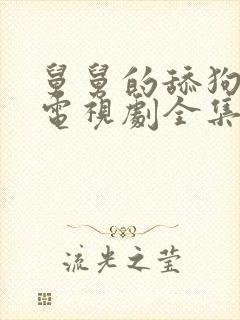 舅舅的舔狗
電視劇全集
流光之莹